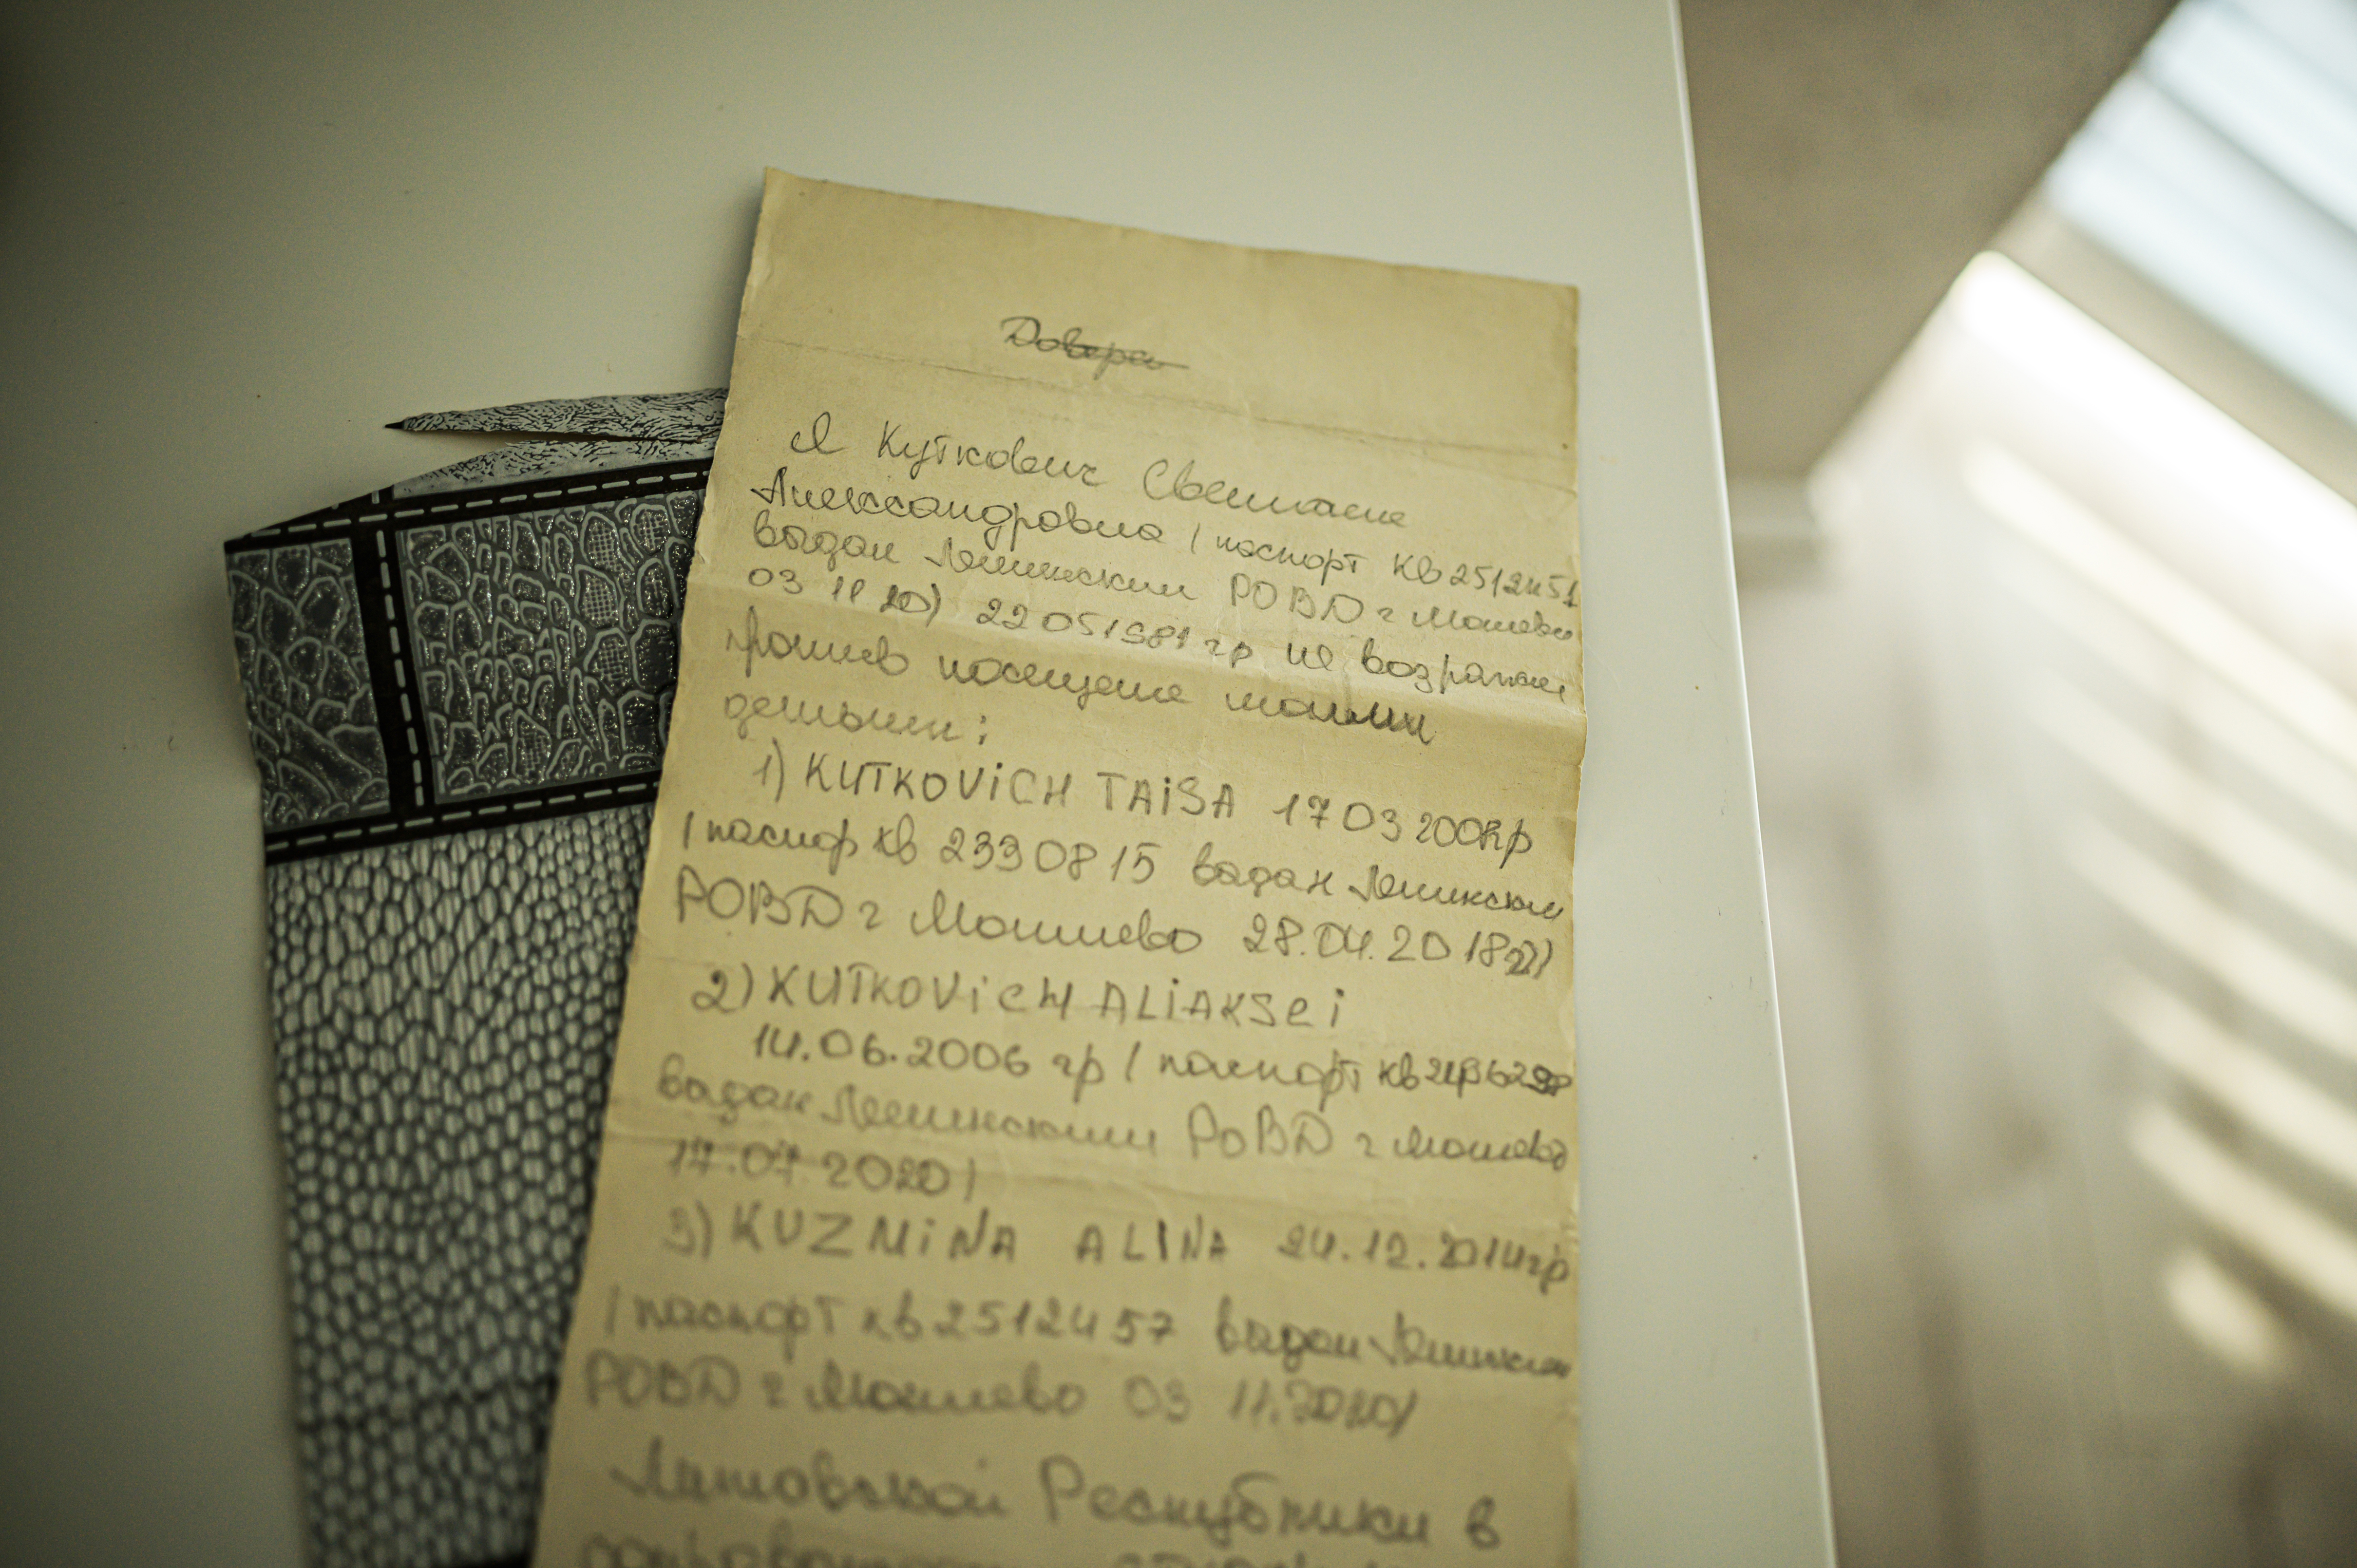 Довере
Я Куткович Светлана
Александровна (паспорт КВ2512451
выдан Ленинским РОВД г Могилево
03 11 20) 22051981 гр не возражаю
против посещение моими
детьми:
1) KUTKOViCH TAiSA 17 03 гр
(паспор КВ 2330815 выдан Ленинским
РОВД г Могилево 28.04.2018г))
2) KUTKOViCH ALiAKSEi
14.06.2006 гр (паспорт КВ
выдан Ленинским РОВД г Могилево
17.07.2020)
3) KUZMiNA ALINA 24.12.2014гр
(паспорт КВ2512457 выдан Ленинским
РОВД г Могилево 03 11.2020)
Литовской Республики в